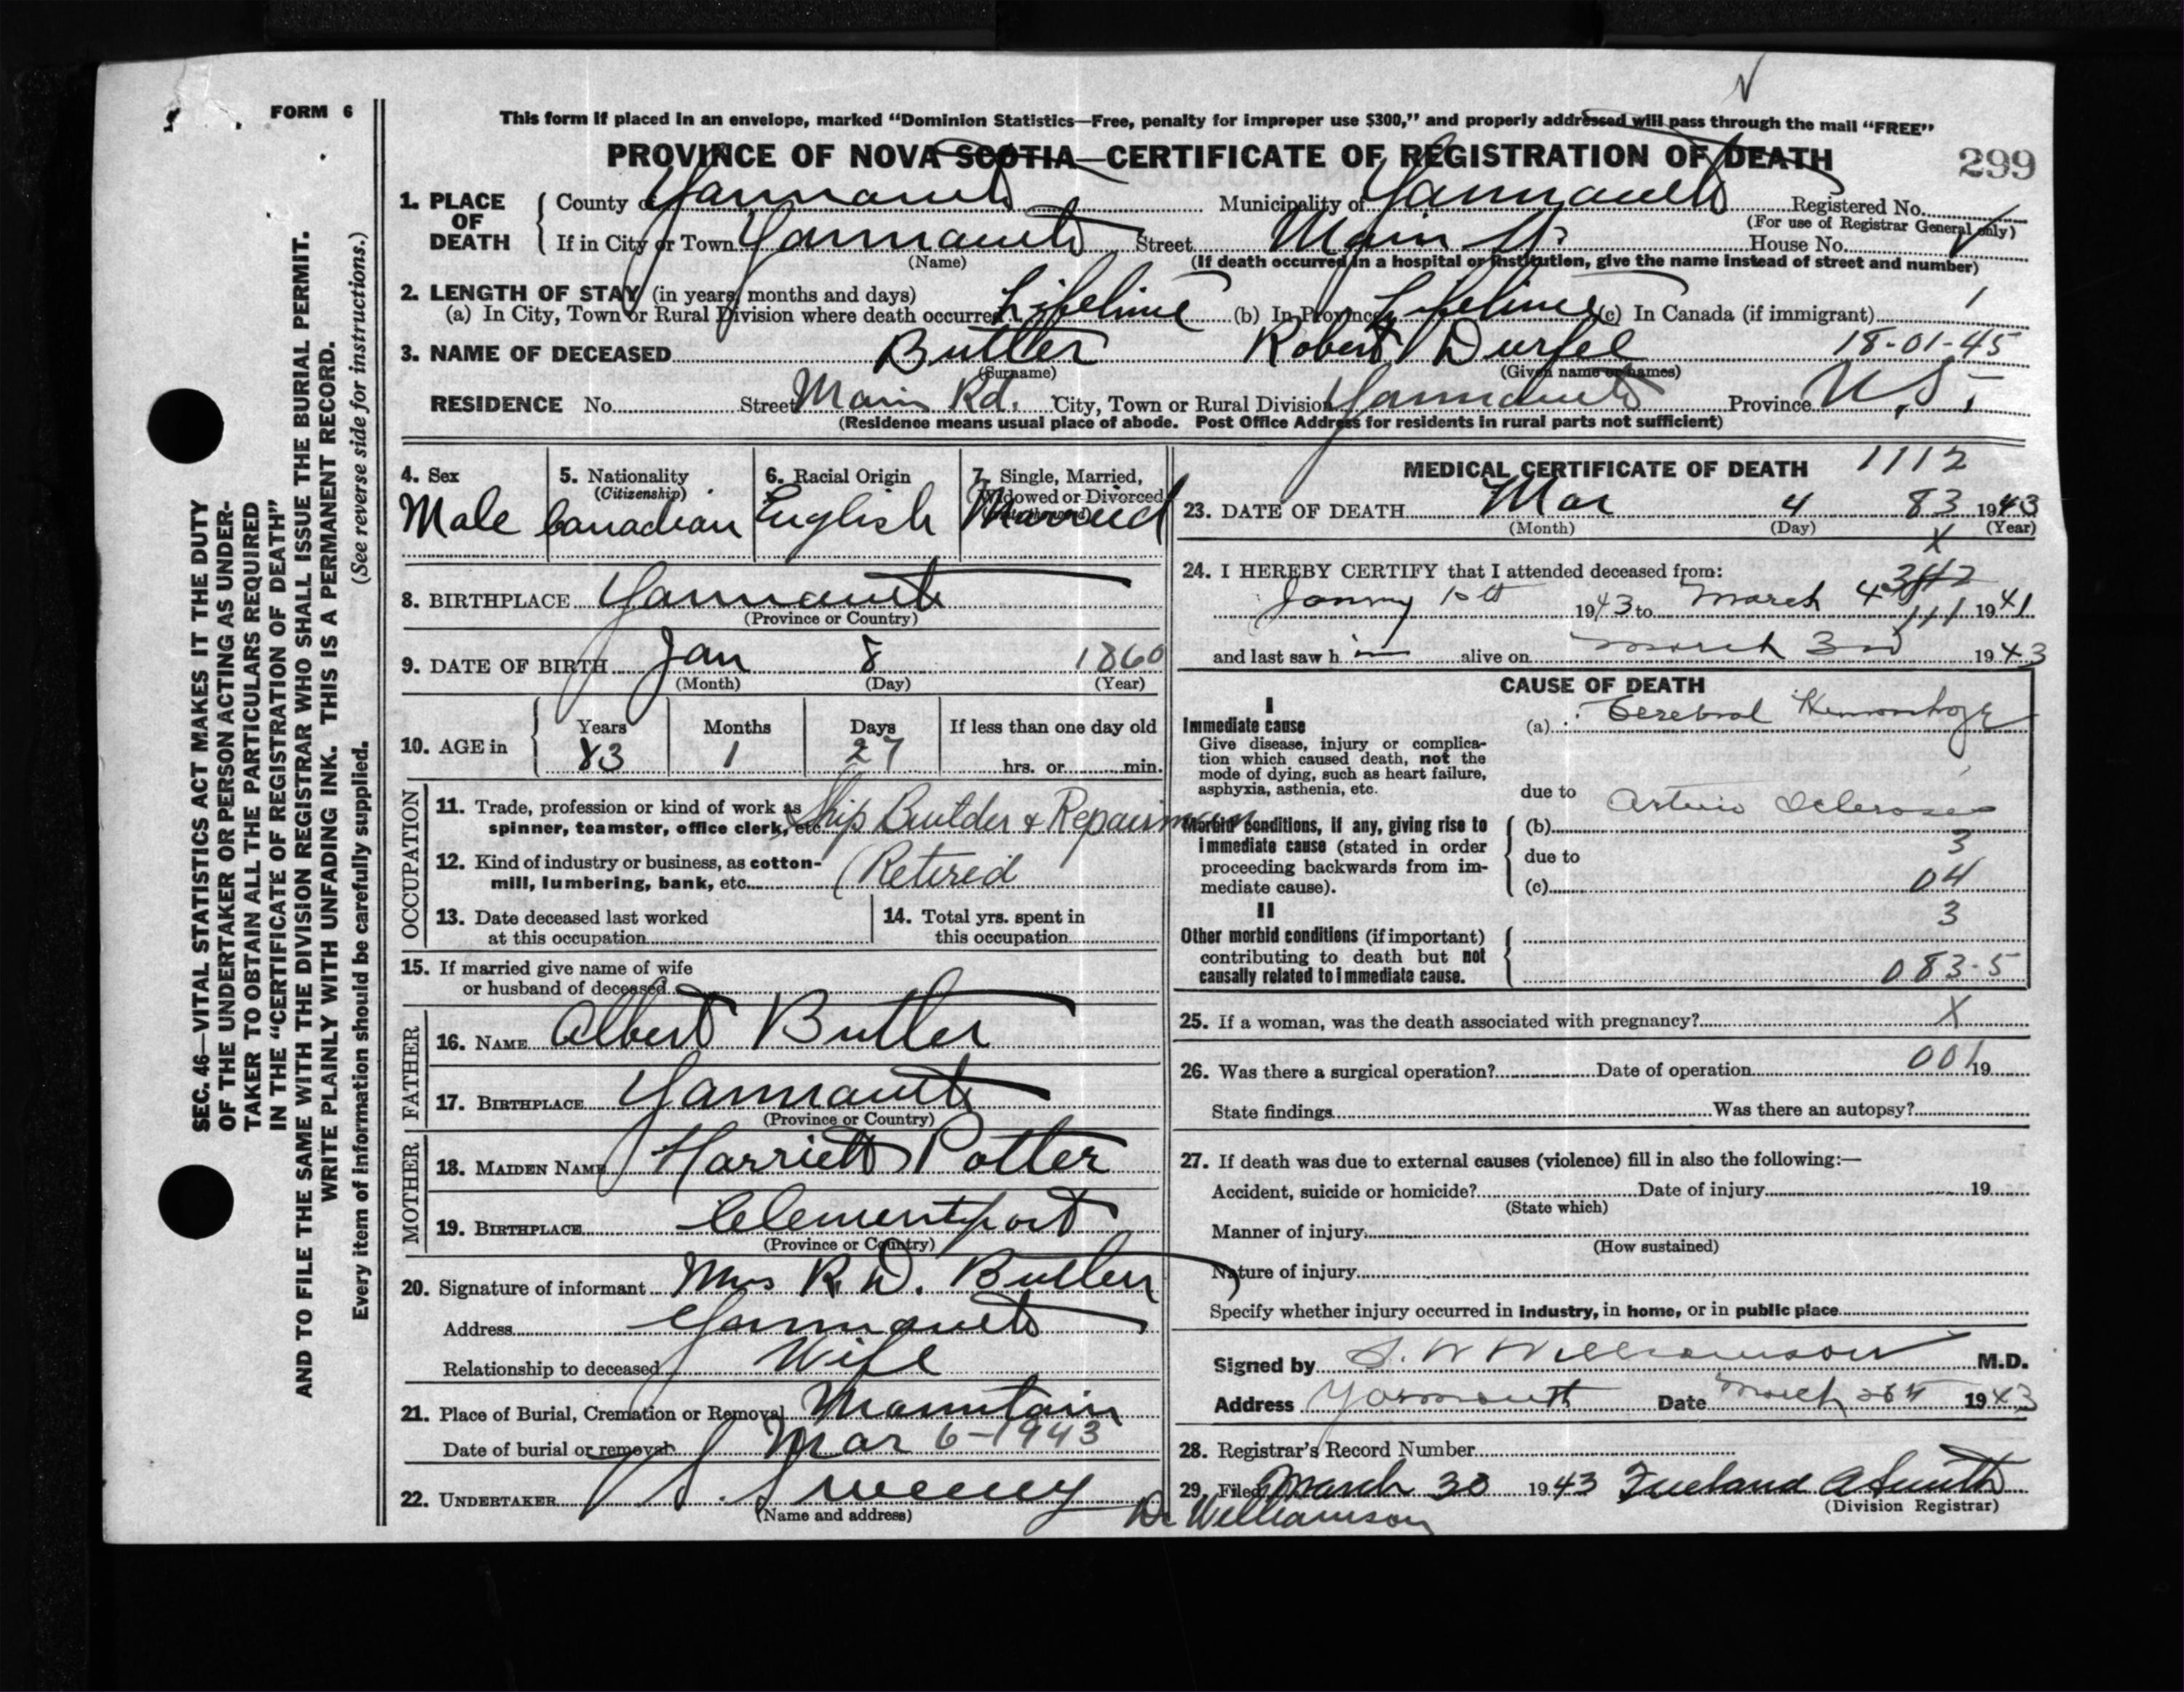 FORM 6
This form if placed in an envelope, marked "Dominion Statistics—Free, penalty for improper use $300," and properly addressed will pass through the mail "FREE"
PROVINCE OF NOVA SCOTIA—CERTIFICATE OF REGISTRATION OF DEATH
299
1. PLACE OF DEATH
County of Yarmouth Municipality of Yarmouth Registered No.
(For use of Registrar General only)
If in City or Town Yarmouth Street Main St. House No.
(Name)
(If death occurred in a hospital or institution, give the name instead of street and number)
2. LENGTH OF STAY (in years, months and days)
(a) In City, Town or Rural Division where death occurred Lifetime (b) In Province Lifetime (c) In Canada (if immigrant)
3. NAME OF DECEASED Butler Robert Durfee 18-01-45
(Surname) (Given name or names)
RESIDENCE No. Street Main Rd. City, Town or Rural Division Yarmouth Province N.S.
(Residence means usual place of abode. Post Office Address for residents in rural parts not sufficient)
SEC. 46—VITAL STATISTICS ACT MAKES IT THE DUTY
OF THE UNDERTAKER OR PERSON ACTING AS UNDER-
TAKER TO OBTAIN ALL THE PARTICULARS REQUIRED
IN THE "CERTIFICATE OF REGISTRATION OF DEATH"
AND TO FILE THE SAME WITH THE DIVISION REGISTRAR WHO SHALL ISSUE THE BURIAL PERMIT.
WRITE PLAINLY WITH UNFADING INK. THIS IS A PERMANENT RECORD.
Every item of information should be carefully supplied. (See reverse side for instructions.)
4. Sex
Male
5. Nationality
(Citizenship)
Canadian
6. Racial Origin
English
7. Single, Married,
Widowed or Divorced
Married
8. BIRTHPLACE Yarmouth
(Province or Country)
9. DATE OF BIRTH Jan 8 1860
(Month) (Day) (Year)
10. AGE in
Years Months Days If less than one day old
83 1 27 hrs. or min.
OCCUPATION
11. Trade, profession or kind of work as
spinner, teamster, office clerk, etc. Ship Builder & Repairman
12. Kind of industry or business, as cotton-
mill, lumbering, bank, etc. (Retired
13. Date deceased last worked
at this occupation
14. Total yrs. spent in
this occupation
15. If married give name of wife
or husband of deceased
FATHER
16. NAME Albert Butler
17. BIRTHPLACE Yarmouth
(Province or Country)
MOTHER
18. MAIDEN NAME Harriett Potter
19. BIRTHPLACE Clementsport
(Province or Country)
20. Signature of informant Mrs R. D. Butler
Address Yarmouth
Relationship to deceased Wife
21. Place of Burial, Cremation or Removal Mountain
Date of burial or removal Mar 6-1943
22. UNDERTAKER V. S. Sweeny
(Name and address)
MEDICAL CERTIFICATE OF DEATH 1112
23. DATE OF DEATH Mar 4 83 1943
(Month) (Day) (Year)
X
24. I HEREBY CERTIFY that I attended deceased from:
1943 to March 4 1941
111
and last saw him alive on March 3rd 1943
CAUSE OF DEATH
I
Immediate cause
Give disease, injury or complica-
tion which caused death, not the
mode of dying, such as heart failure,
asphyxia, asthenia, etc.
(a) Cerebral Hemorrhage
due to Arterio Sclerosis
Morbid conditions, if any, giving rise to
immediate cause (stated in order
proceeding backwards from im-
mediate cause).
(b)
3
due to
(c) 04
II
3
Other morbid conditions (if important)
contributing to death but not
causally related to immediate cause.
083-5
25. If a woman, was the death associated with pregnancy? X
26. Was there a surgical operation? Date of operation 001 19
State findings Was there an autopsy?
27. If death was due to external causes (violence) fill in also the following:—
Accident, suicide or homicide? Date of injury 19
(State which)
Manner of injury
(How sustained)
Nature of injury
Specify whether injury occurred in industry, in home, or in public place
Signed by S. W Williamson M.D.
Address Yarmouth Date March 1943
28. Registrar's Record Number
29. Filed March 30 1943 Freeland A Smith
(Division Registrar)
Dr Williamson